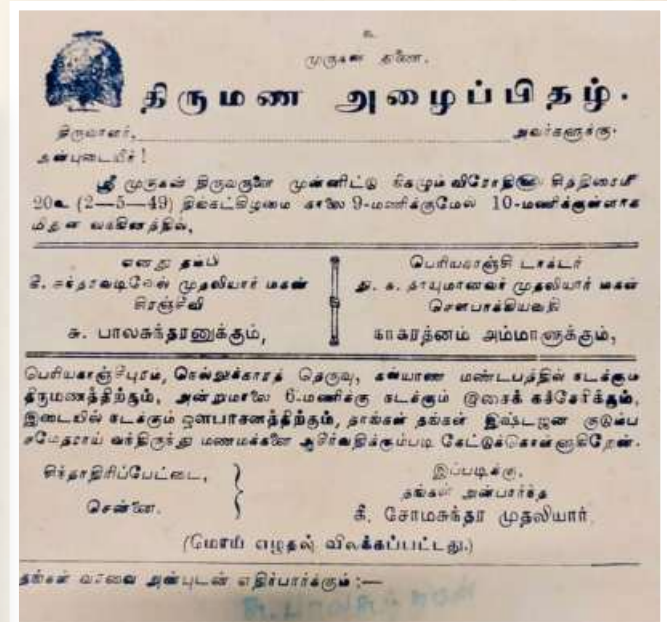 உ
முருகன் துணை.
திருமண அழைப்பிதழ்.
திருவாளர், அவர்களுக்கு.
அன்புடையீர்!
ஸ்ரீ முருகன் திருவருளை முன்னிட்டு நிகழும் விரோதி சித்திரைமீ
20உ (2—5—49) திங்கட்கிழமை காலை 9-மணிக்குமேல் 10-மணிக்குள்ளாக
மிதுன லக்கினத்தில்,
எனது தம்பி
கீ. சுந்தரவடிவேல் முதலியார் மகன்
சிரஞ்சீவி
சு. பாலசுந்தரனுக்கும்,
பெரியகாஞ்சி டாக்டர்
து. சு. தாயுமானவர் முதலியார் மகள்
சௌபாக்கியவதி
நாகரத்னம் அம்மாளுக்கும்,
பெரியகாஞ்சீபுரம், நெல்லுக்காரத் தெருவு, கல்யாண மண்டபத்தில் நடக்கும்
திருமணத்திற்கும், அன்றுமாலை 6-மணிக்கு நடக்கும் இசைக் கச்சேரிக்கும்,
இடையில் நடக்கும் ஔபாசனத்திற்கும், தாங்கள் தங்கள் இஷ்டஜன குடும்ப
சமேதராய் வந்திருந்து மணமக்களை ஆசிர்வதிக்கும்படி கேட்டுக்கொள்ளுகிறேன்.
சிந்தாதிரிப்பேட்டை,
சென்னை.
இப்படிக்கு,
தங்கள் அன்பார்ந்த
கீ. சோமசுந்தர முதலியார்
(மொய் எழுதல் விலக்கப்பட்டது.)
தங்கள் வரவை அன்புடன் எதிர்பார்க்கும்:—
சு. பாலசுந்தரன்